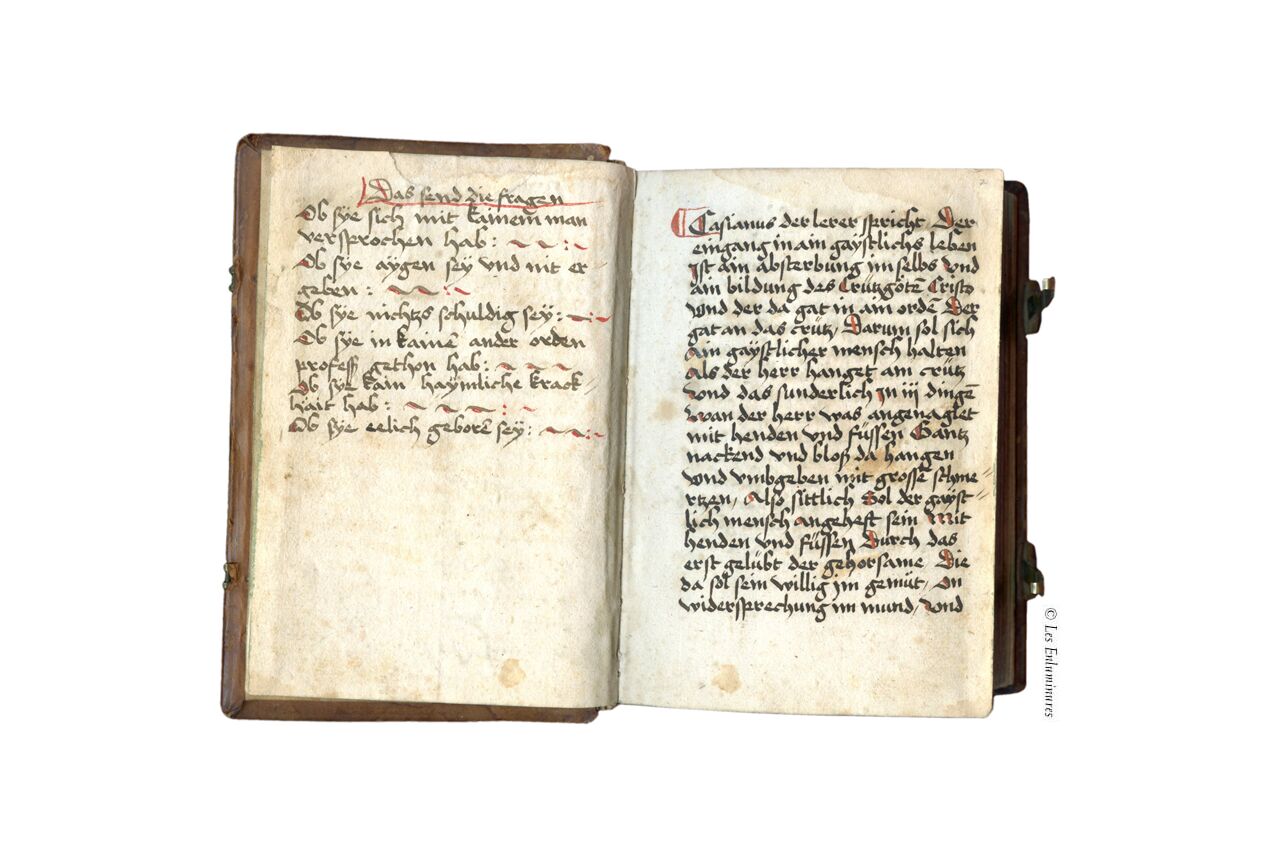 Das send die fragen
Ob sye sich mit kainem man
versprochen hab :
Ob sye aygen sey vnd nit er-
geben :
Ob sye nichtzs schuldig sey :
Ob sye in kainē ander orden
profess gethon hab :
Ob sye kain haymliche kranck-
hait hab :
Ob sye eelich geborē sey :
Casianus der lerer spricht Der
eingang in ain gaystlichs leben
ist ain absterbung im selbs vnd
ain bildung des Crützgotē Cristo
vnd der da gat in ain ordē Der
gat an das crütz, Darum sol sich
Ain gaystlicher mensch halten
Als der herr hanget am crütz
vnd das sunderlich in iii dingē
wan der herr was angenaglet
mit henden vnd füssen Gantz
nackend vnd bloß da hangen
vnd vmbgeben mit grossē schme
rtzen, Also sittlich Sol der gayst
lich mensch angeheft sein Mit
henden vnd füssen Durch das
erst gelübt der gehorsame Die
da sol sein willig jm gemüt, On
widersprechung im mund, vnd
© Les Enluminures